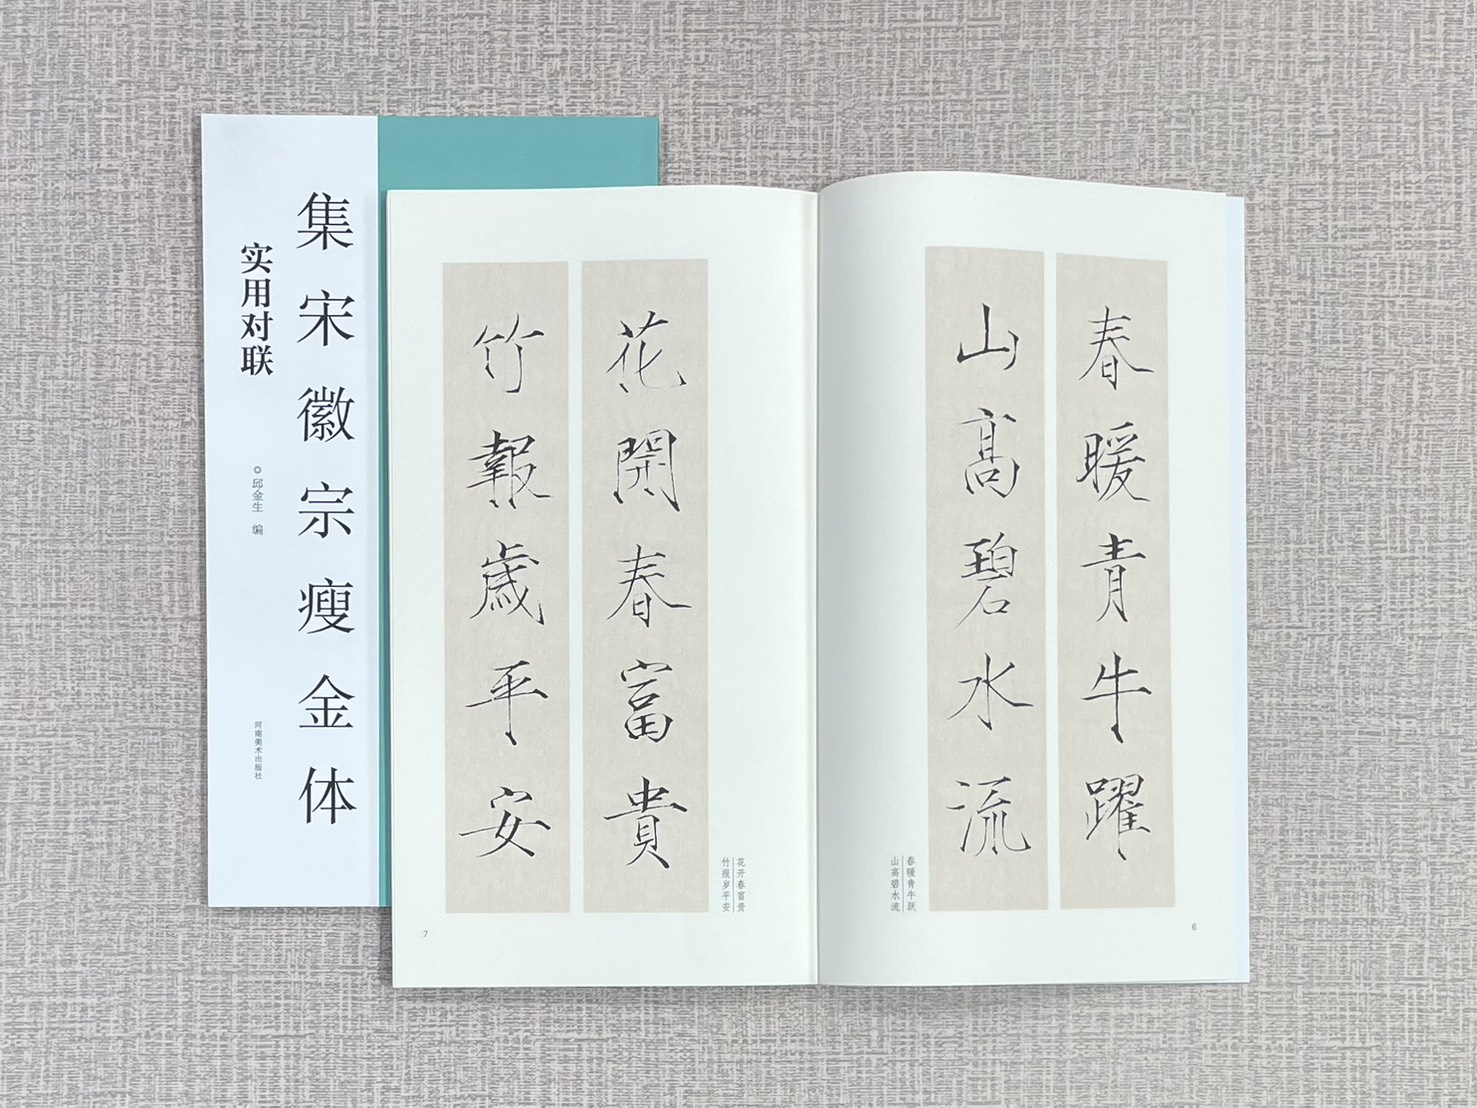 集宋徽宗瘦金体
实用对联
邱金生 编
河南美术出版社
春暖青牛躍
山高碧水流
春暖青牛跃
山高碧水流
6
花開春富貴
竹報歲平安
花开春富贵
竹报岁平安
7